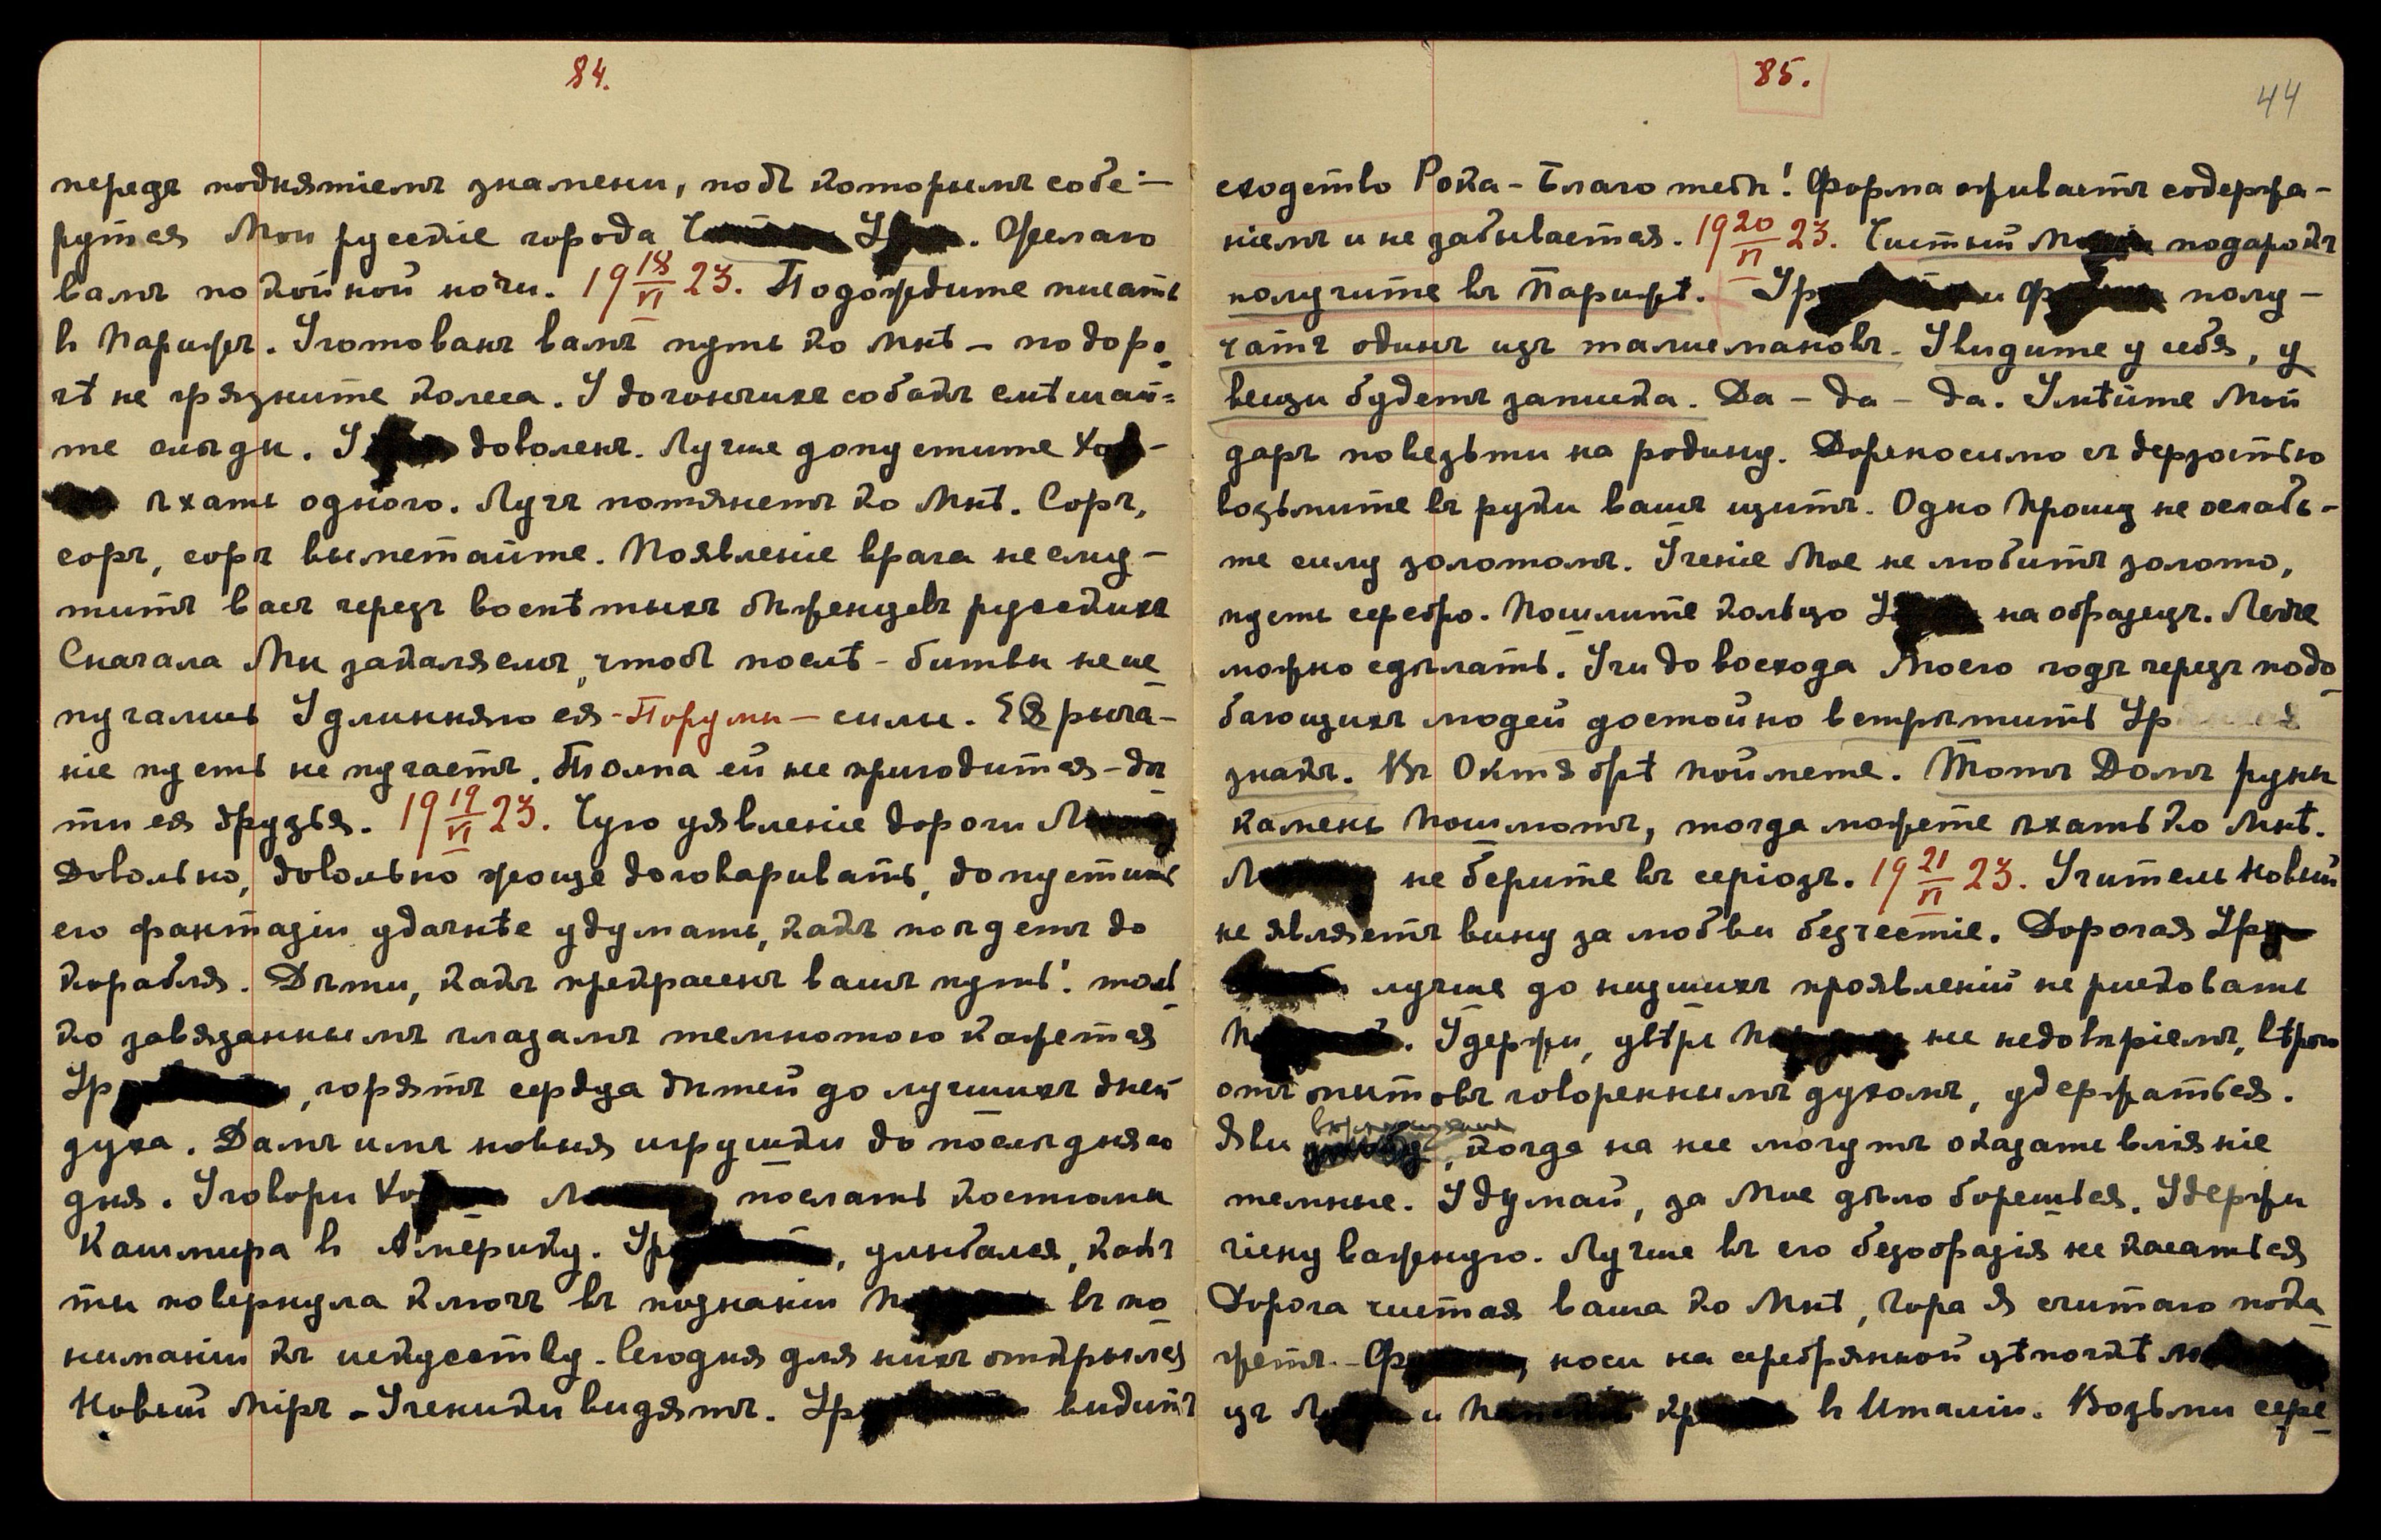 84.
передъ поднятіемъ знамени, подъ которымъ собе-
рутся Мои русскіе города . Желаю
вамъ покойной ночи. 19 18/VI 23. Подождите писать
в Парижъ. Уготованъ вамъ путь ко Мнѣ — по доро
гѣ не грязните колеса. У догончихъ собакъ смѣшай=
те слѣды. доволенъ. Лучше допустите
ѣхать одного. Лучъ потянетъ ко Мнѣ. Соръ,
соръ, соръ выметайте. Появленіе врага не сму-
титъ васъ черезъ бѣженцевъ русскихъ
Сначала Мы закаляемъ, чтобъ послѣ - битвы не ис
пугались Удлинняю ея - Порумы — силы. рыча-
ніе пусть не пугаетъ. Толпа ей не пригодится - дѣ
ти ея друзья. 19 19/VI 23. Чую уявленіе дороги
Довольно, довольно договаривать, допустимъ
его фантазіи удачнѣе удумать, какъ поѣдетъ до
корабля. Дѣти, какъ прекрасенъ вашъ путь! толь
ко завязаннымъ глазамъ темнотою кажется
, горятъ сердца дѣтей до лучшихъ дней
духа. Далъ имъ новыя игрушки до послѣдняго
дня. Уговори послать костюмы
Кашмира в Америку. , улыбался, какъ
ты повернула ключъ въ познаніи въ по
ниманіи къ искусству. Сегодня для нихъ открылся
Новый Міръ - Ученики видятъ. видитъ
85.
44
сходство Рока - Благо тебѣ! Форма оживаетъ содержа-
ніемъ и не забывается. 19 20/VI 23. Чистый подарокъ
получите въ Парижѣ. и полу-
чатъ одинъ изъ талисмановъ. Увидите у себя, у
вещи будетъ записка. Да - да - да. Умѣйте Мой
даръ повезти на родину. Дореносимо съ дерзостью
возьмите въ руки вашъ щитъ. Одно Прошу не ослабь-
те силу золотомъ. Ученіе Мое не любитъ золото,
пусть серебро. Пошлите кольцо на образецъ. Легче
можно сдѣлать. Учи до восхода Моего годъ черезъ подо
бающихъ людей достойно встрѣтить
знакъ. Въ Октябрѣ поймете. Тотъ Домъ руны
камень Пошлютъ, тогда можете ѣхать ко Мнѣ.
не берите въ серіозъ. 19 21/VI 23. Учитель новый
не являетъ вину за любви безчестіе. Дорогая
лучше до низшихъ проявленій не рисковать
. Удержи, увѣрь не недовѣріемъ, вѣрою
отъ говореннымъ духомъ, удержаться.
Яви , когда на нее могутъ оказать вліяніе
темные. Удумай, за Мое дѣло борешься. Удержи
гіену важную. Лучше въ его безобразія не касаться
Дорога чистая ваша ко Мнѣ, гора Я считаю пока
жетъ. - , носи на серебрянной цѣпочкѣ
изъ и в Италіи. Возьми сере